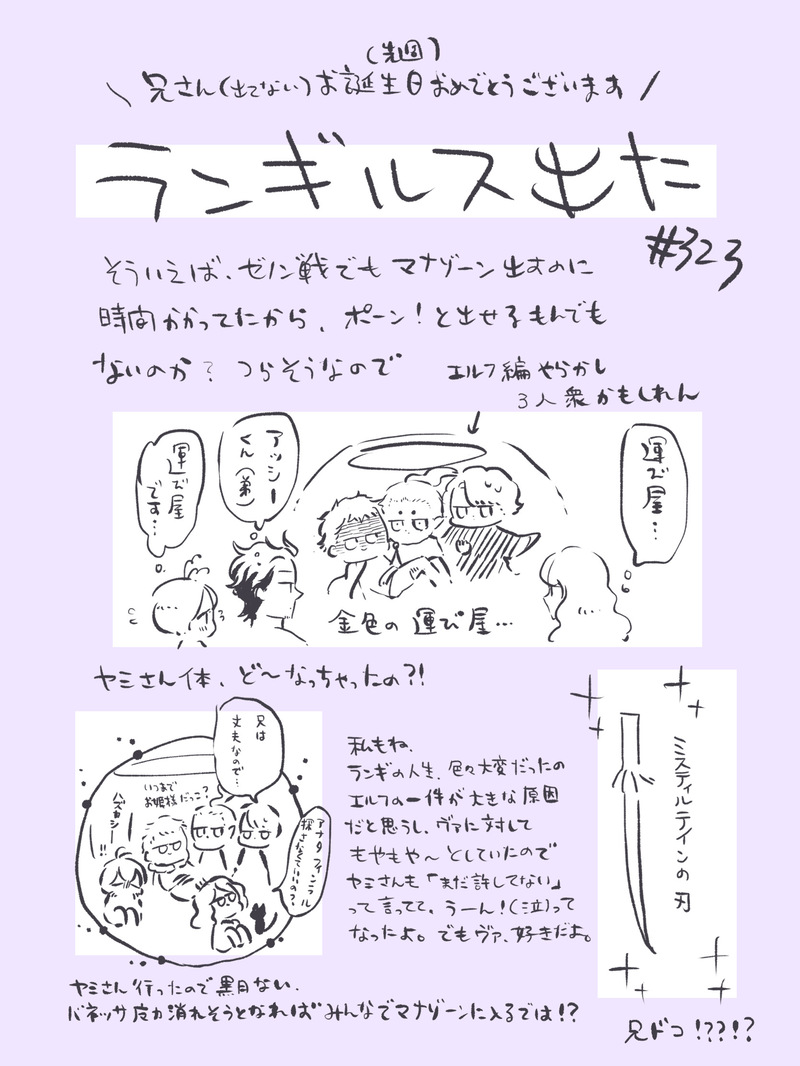 (先週)
\ 兄さん(出てない)お誕生日おめでとうございます /
ランギルス出た
#323
そういえば、ゼノン戦でもマナゾーン出すのに
時間かかってたから、ポーン!と出せるもんでも
ないのか?つらそうなので
エルフ編やらかし
3人衆かもしれん
運び屋…
アッシー
くん(弟)
運び屋
です…
金色の運び屋…
ヤミさん体、ど〜なっちゃったの?!
兄は
丈夫なので…
いつまで
お姫様だっこ?
ハズカシー!!
アナタフィンラル
探さなくていいの?
私もね、
ランギの人生、色々大変だったの
エルフの一件が大きな原因
だと思うし、ヴァに対して
もやもや〜としていたので
ヤミさんも「まだ許してない」
って言ってて、うーん!(泣)って
なったよ。でもヴァ、好きだよ。
ミスティルテインの刃
ヤミさん行ったので黒目ない、
バネッサ度か消れそうとなれば みんなでマナゾーンに入るでは!?
兄ドコ!??!?